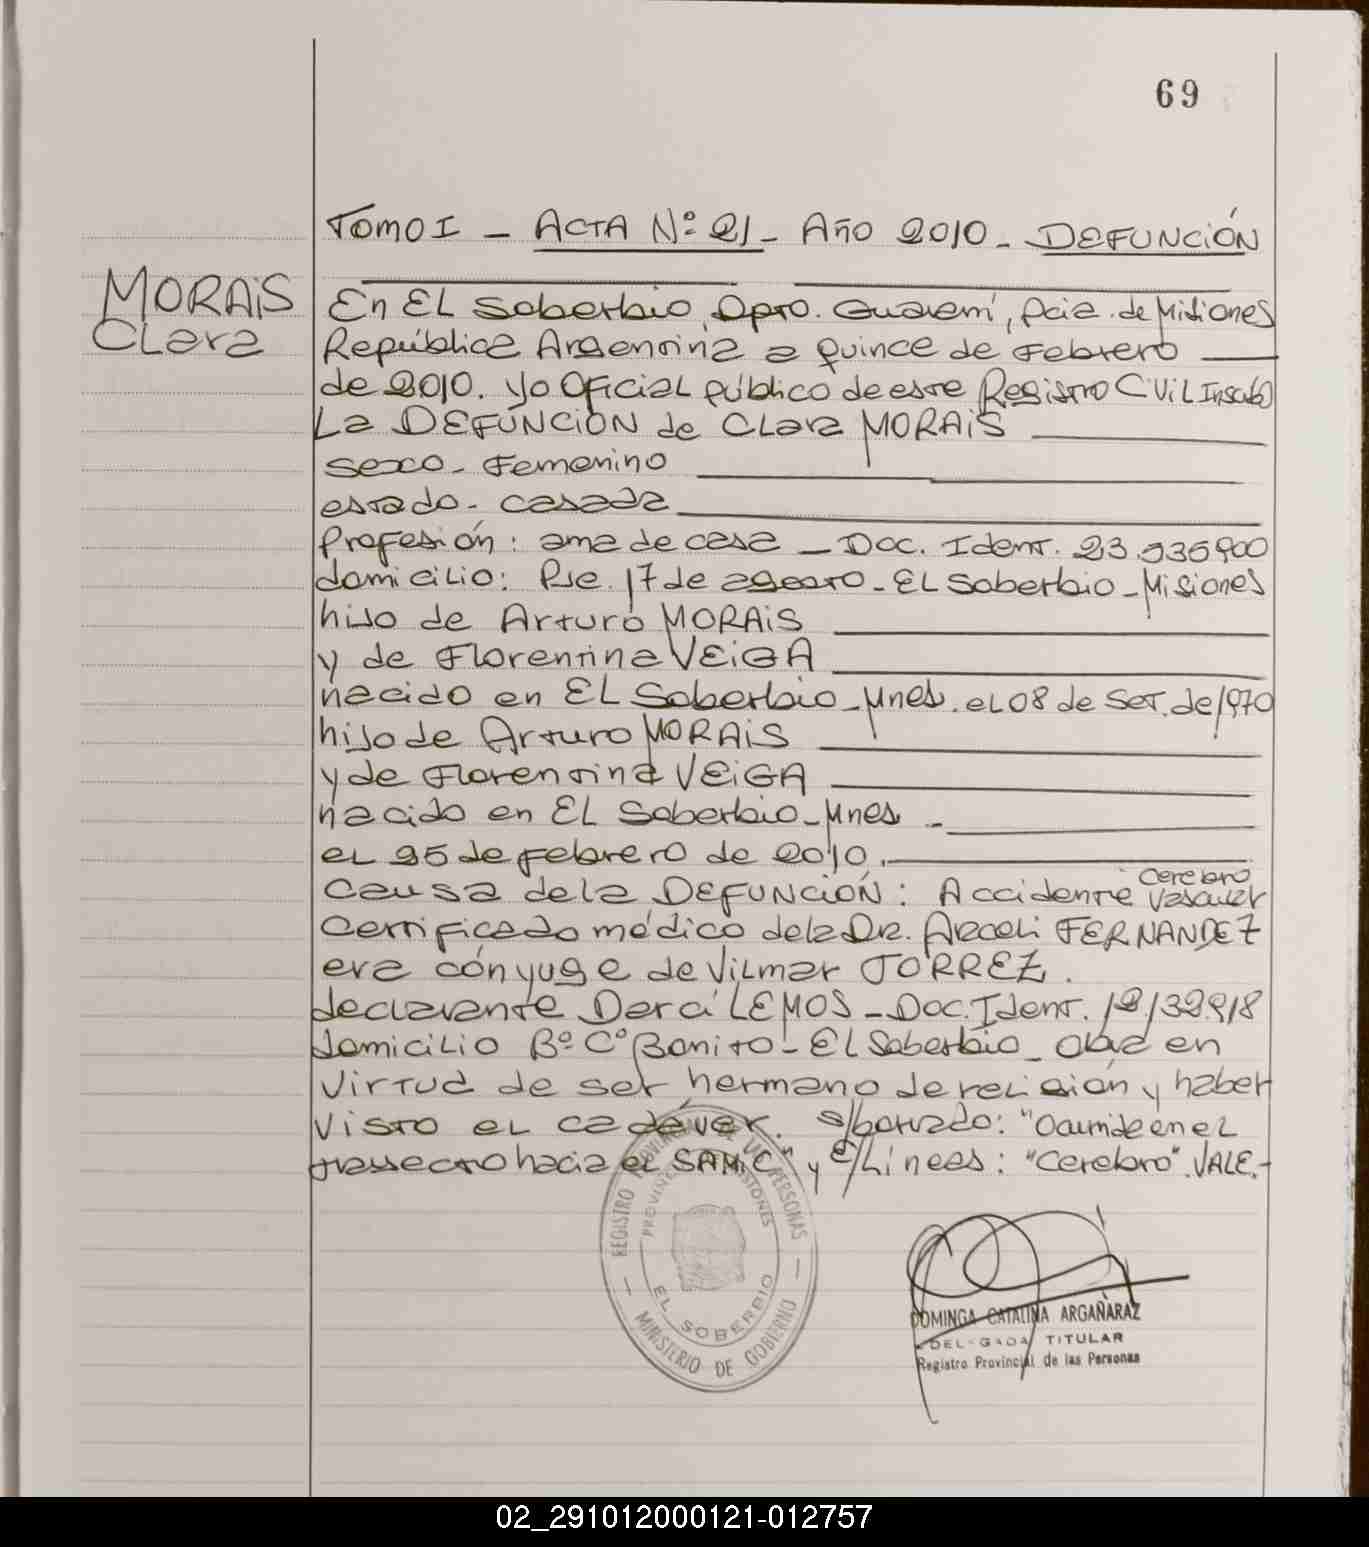 69
TOMO I - ACTA Nº: 21 - AÑO 2010 - DEFUNCIÓN
MORAiS
CLara
En EL Soberbio, Dpto. Guaraní, Pcia. de Misiones
República Argentina a quince de Febrero
de 2010. yo Oficial público de este Registro CiviL Inscribo
La DEFUNCIÓN de CLara MORAiS
sexo - Femenino
estado - casada
Profesión: ama de casa - Doc. Ident. 23.
domiciLio: 17 de agosto - EL Soberbio - Misiones
hijo de Arturo MORAiS
y de Florentina VEiGA
nacido en EL Soberbio - Mnes. eL 08 de SET. de 1970
hijo de Arturo MORAiS
y de Florentina VEiGA
nacido en EL Soberbio - Mnes -
eL de Febrero de 2010.
Causa de la DEFUNCIÓN: Accidente Cerebro Vascular
Certificado médico de la DR. Araceli FERNANDEZ
era cónyuge de ViLmar TORREZ.
declarante Darcí LEMOS - Doc. Ident.
domiciLio Bº Cº Bonito - EL Soberbio - Obra en
virtud de ser hermano de reLigión y haber
visto eL cadáver. s/borrado: "Ocurrida en eL
trayecto hacia eL SAMiC" y E/Líneas: "Cerebro". VALE.-
REGISTRO PROVINCIAL DE LAS PERSONAS
PROVINCIA MISIONES
EL SOBERBIO
MINISTERIO DE GOBIERNO
DOMINGA CATALINA ARGAÑARAZ
DELEGADA TITULAR
Registro Provincial de las Personas
02_291012000121-012757